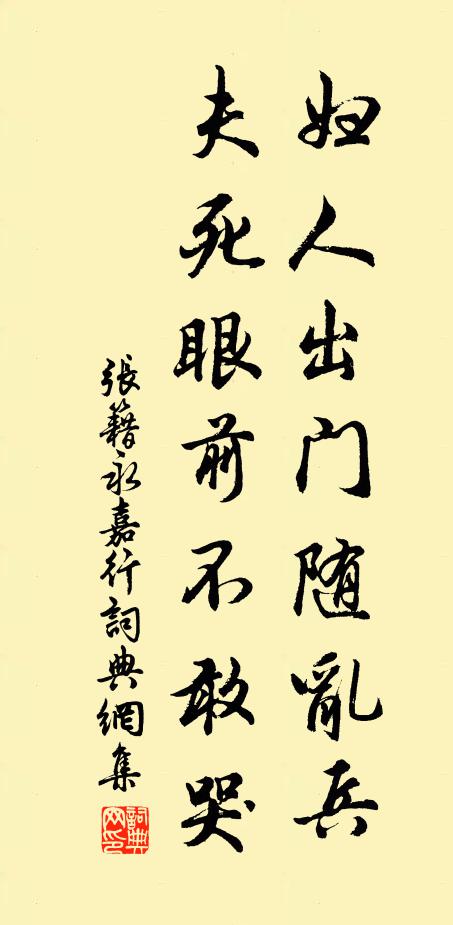 妇人出门随亂兵
夫死眼前不敢哭
張籍永嘉行詞典網集
詞典网印